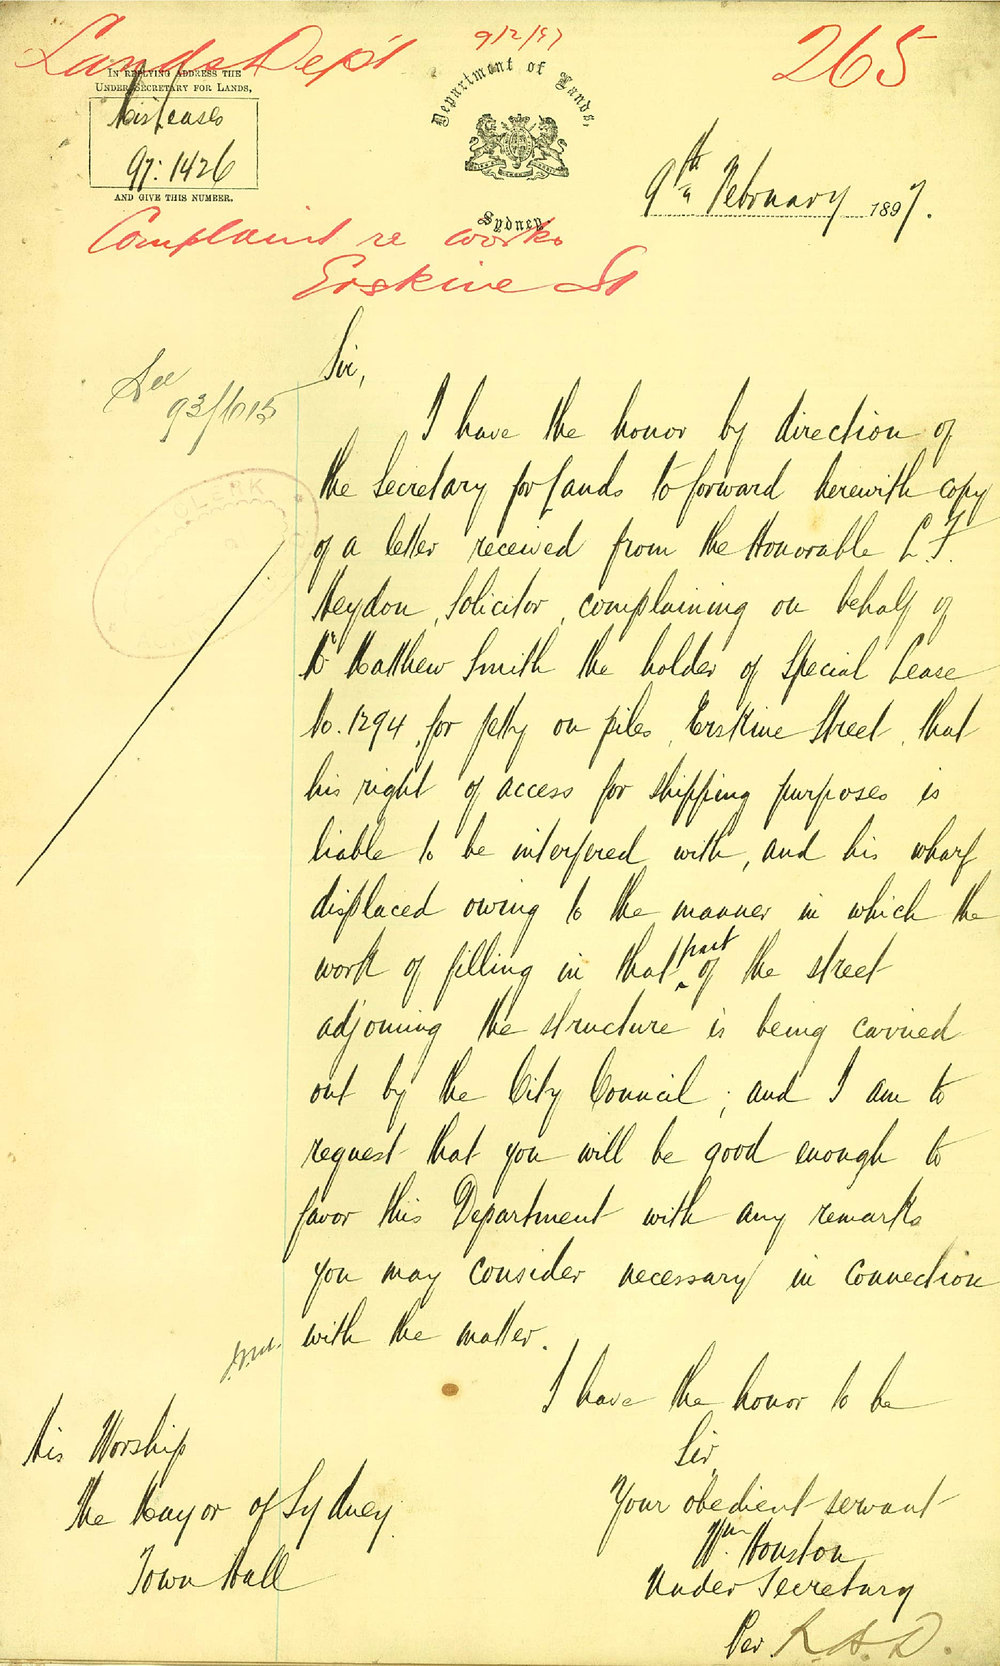 Lands Dep't
9/2/97
265
IN REPLYING ADDRESS THE
UNDER SECRETARY FOR LANDS,
Mis Leases
97: 1426
AND GIVE THIS NUMBER.
Department of Lands,
Sydney.
9th February 1897.
Complaint re works
Erskine St
See
93/615
CLERK
Sir,
I have the honor by direction of
the Secretary for Lands to forward herewith copy
of a letter received from the Honorable L. F.
Heydon, Solicitor, complaining on behalf of
Mr Matthew Smith the holder of Special Lease
No. 1294, for jetty on piles, Erskine Street, that
his right of access for shipping purposes is
liable to be interfered with, and his wharf
displaced owing to the manner in which the
work of filling in that part of the street
adjoining the structure is being carried
out by the City Council; and I am to
request that you will be good enough to
favor this Department with any remarks
you may consider necessary in connection
with the matter.
I have the honor to be
Sir,
Your obedient servant
Wm Houston
Under Secretary
Per
His Worship
The Mayor of Sydney.
Town Hall